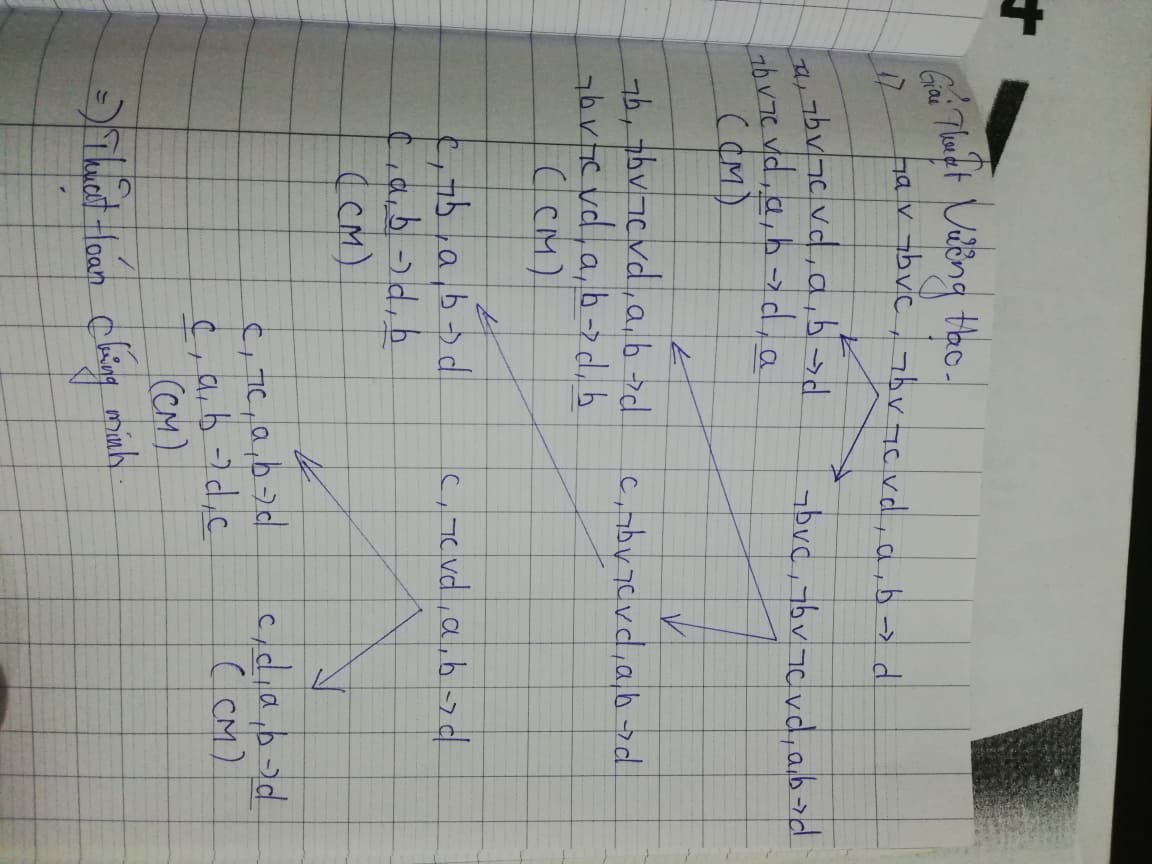 Giải Thuật Vương Hạo.
1) ¬a ∨ ¬b∨c, ¬b∨ ¬c ∨d, a, b → d
¬a, ¬b∨ ¬c ∨d, a, b → d
¬b∨c, ¬b∨ ¬c ∨d, a,b → d
¬b∨¬c ∨d, a, b → d, a
(CM)
¬b, ¬b∨ ¬c∨d, a, b → d
c, ¬b∨ ¬c∨d, a, b → d
¬b ∨ ¬c ∨d, a, b → d, b
(CM)
c, ¬b, a, b → d
c, ¬c∨d, a, b → d
c, a, b → d, b
(CM)
c, ¬c, a, b → d
c, d, a, b → d
c, a, b → d, c
(CM)
(CM)
=> Thuật toán Chứng minh.